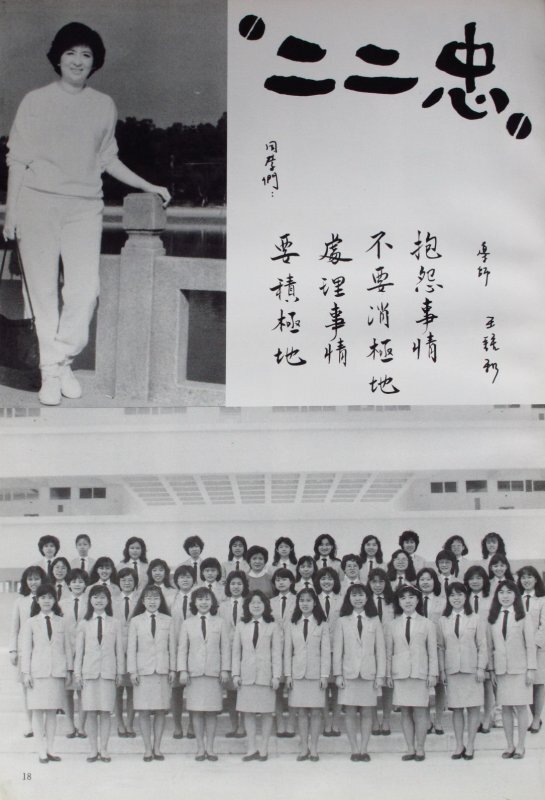 二二忠
同學們：
要積極地
處理事情
不要消極地
抱怨事情
導師 王
18